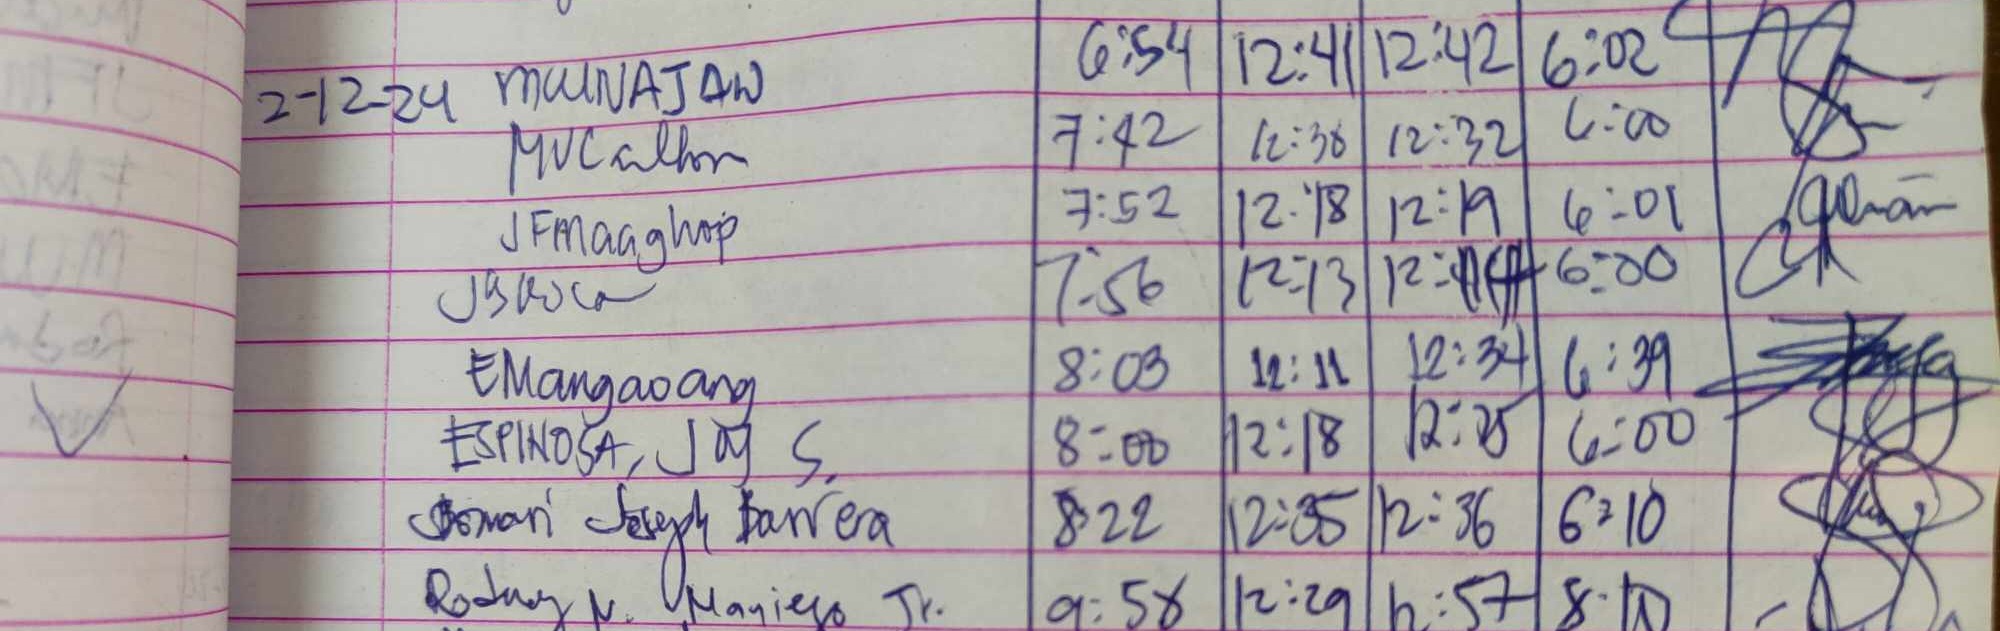 2-12-24 MWNAJAN 6:54 12:41 12:42 6:02
MVCallon 7:42 12:30 12:32 6:00
JFMaaghop 7:52 12:18 12:19 6:01
7:56 12:13 6:00
EMangaoang 8:03 12:11 12:34 6:39
ESPINOSA, JOY S. 8:00 12:18 12:25 6:00
Joseph Barrera 8:22 12:35 12:36 6:10
Rodney N. Maniego Jr. 9:58 12:29 12:57 8:10